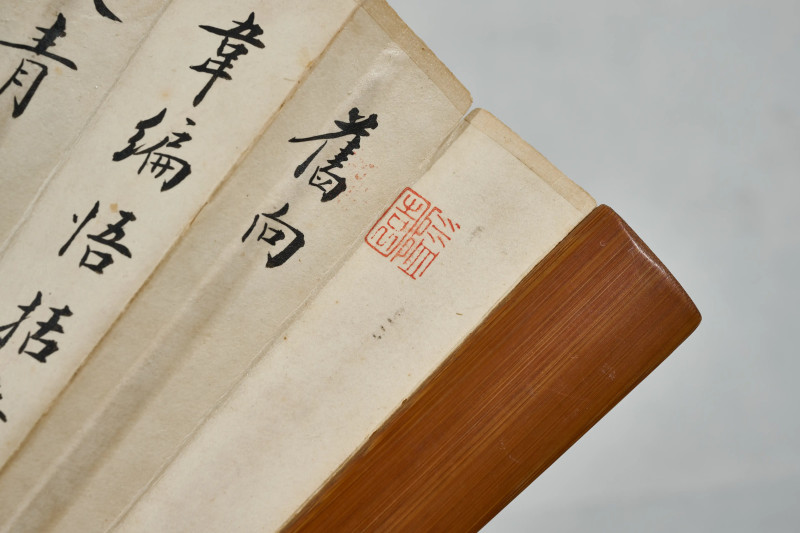 舊向
韋編悟括
青